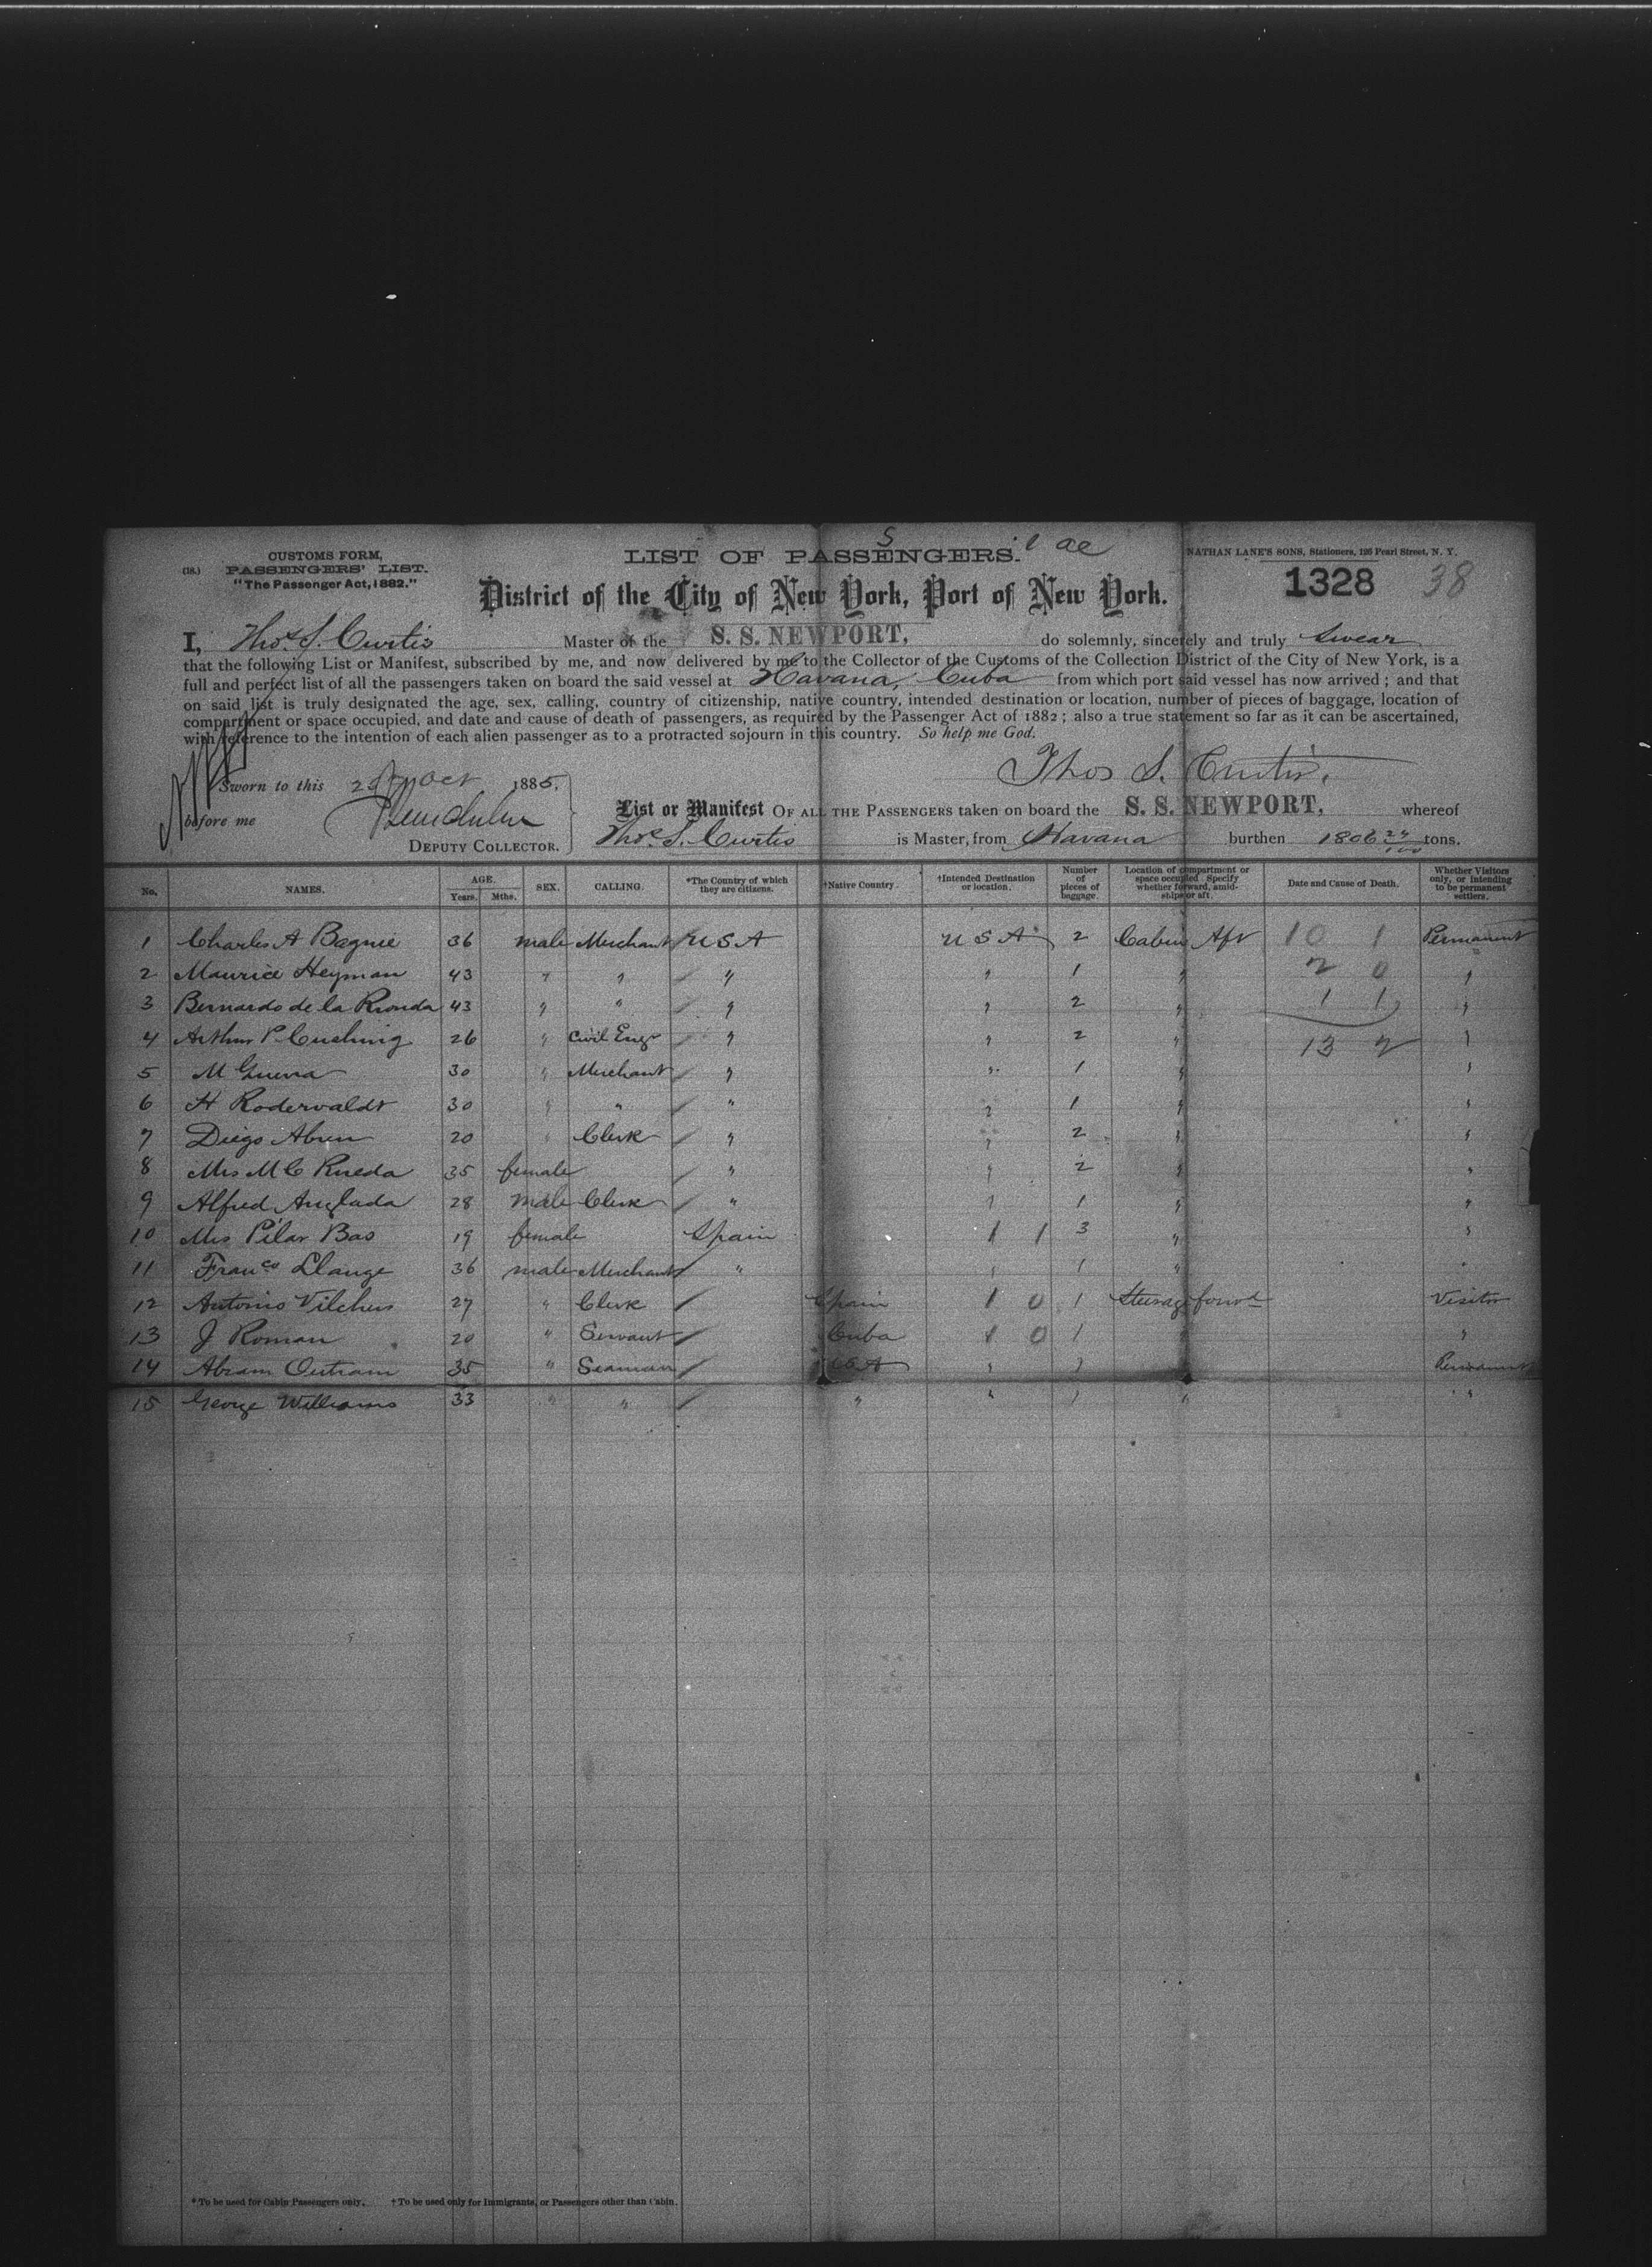 CUSTOMS FORM,
(18.) PASSENGERS' LIST.
"The Passenger Act, 1882."
LIST OF PASSENGERS.
NATHAN LANE'S SONS, Stationers, 126 Pearl Street, N. Y.
1328 38
District of the City of New York, Port of New York.
I, Thos. S. Curtis Master of the S. S. NEWPORT, do solemnly, sincerely and truly swear
that the following List or Manifest, subscribed by me, and now delivered by me to the Collector of the Customs of the Collection District of the City of New York, is a
full and perfect list of all the passengers taken on board the said vessel at Havana, Cuba from which port said vessel has now arrived; and that
on said list is truly designated the age, sex, calling, country of citizenship, native country, intended destination or location, number of pieces of baggage, location of
compartment or space occupied, and date and cause of death of passengers, as required by the Passenger Act of 1882; also a true statement so far as it can be ascertained,
with reference to the intention of each alien passenger as to a protracted sojourn in this country. So help me God.
Thos S. Curtis.
Sworn to this Oct 1885,
before me
DEPUTY COLLECTOR.
List or Manifest OF ALL THE PASSENGERS taken on board the S. S. NEWPORT, whereof
Thos. S. Curtis is Master, from Havana burthen 1806 24/100 tons.
No. NAMES. AGE. Years. Mths. SEX. CALLING. *The Country of which they are citizens. †Native Country. †Intended Destination or location. Number of pieces of baggage. Location of compartment or space occupied. Specify whether forward, amidships or aft. Date and Cause of Death. Whether Visitors only, or intending to be permanent settlers.
1 Charles A Bagnie 36 male Merchant U S A U S A 2 Cabin Aft 10 1 Permanent
2 Maurice Heyman 43 " " " " 1 " 2 0 "
3 Bernardo de la Rionda 43 " " " " 2 " 1 1 "
4 Arthur P Cushing 26 " Civil Engr " " 2 " 13 2 "
5 M Guerra 30 " Merchant " " 1 " "
6 H Rodervaldt 30 " " " " 1 " "
7 Diego Abreu 20 " Clerk " " 2 " "
8 Mrs M C Rueda 35 female " " 2 " "
9 Alfred Anglada 28 male Clerk " " 1 " "
10 Mrs Pilar Bas 19 female Spain 1 1 3 " "
11 Franco Llange 36 male Merchant " " 1 " "
12 Antonio Vilches 27 " Clerk Spain 1 0 1 Steerage forwd Visitor
13 J Roman 20 " Servant Cuba 1 0 1 " "
14 Abram Outram 35 " Seaman USA " 1 " Permanent
15 George Williams 33 " " " " 1 " "
* To be used for Cabin Passengers only. † To be used only for Immigrants, or Passengers other than Cabin.